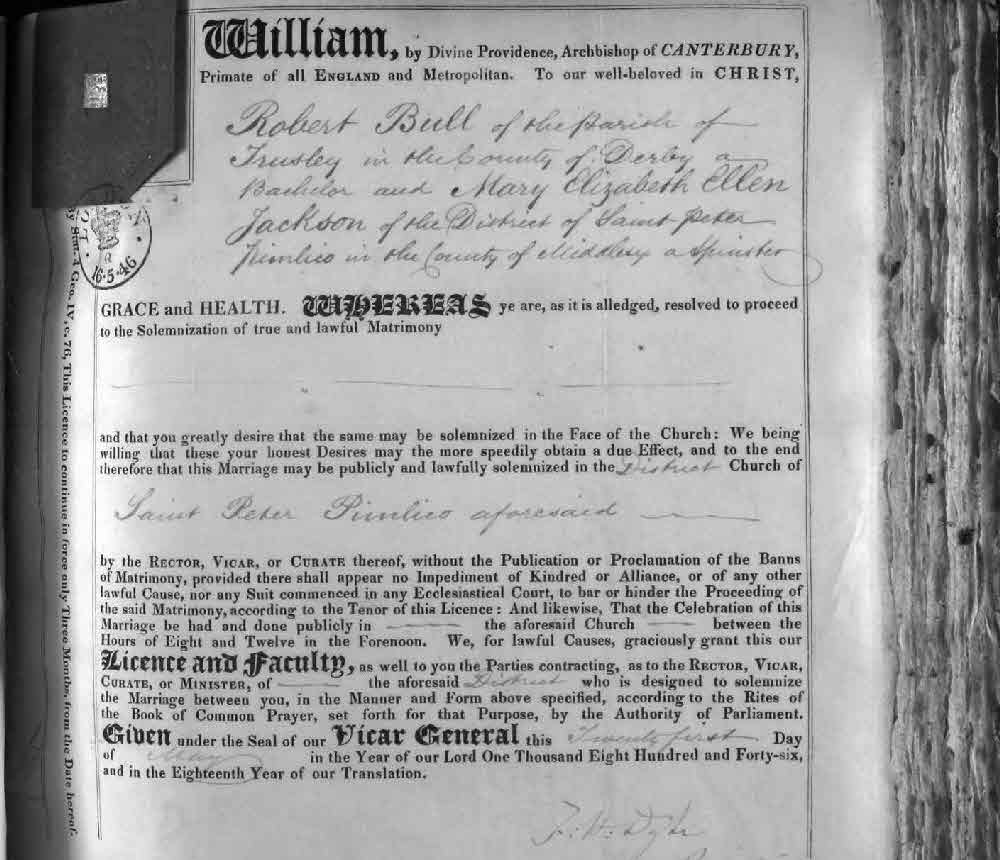 William, by Divine Providence, Archbishop of CANTERBURY,
Primate of all ENGLAND and Metropolitan. To our well-beloved in CHRIST,
Robert Bull of the Parish of
Trusley in the County of Derby a
Bachelor and Mary Elizabeth Ellen
Jackson of the District of Saint Peter
Pimlico in the County of Middlesex a Spinster
16·5·46
By Stat. 4 Geo. IV. c. 76, This Licence to continue in force only Three Months, from the Date hereof.
GRACE and HEALTH. WHEREAS ye are, as it is alledged, resolved to proceed
to the Solemnization of true and lawful Matrimony
and that you greatly desire that the same may be solemnized in the Face of the Church: We being
willing that these your honest Desires may the more speedily obtain a due Effect, and to the end
therefore that this Marriage may be publicly and lawfully solemnized in the District Church of
Saint Peter Pimlico aforesaid
by the RECTOR, VICAR, or CURATE thereof, without the Publication or Proclamation of the Banns
of Matrimony, provided there shall appear no Impediment of Kindred or Alliance, or of any other
lawful Cause, nor any Suit commenced in any Ecclesiastical Court, to bar or hinder the Proceeding of
the said Matrimony, according to the Tenor of this Licence: And likewise, That the Celebration of this
Marriage be had and done publicly in the aforesaid Church between the
Hours of Eight and Twelve in the Forenoon. We, for lawful Causes, graciously grant this our
Licence and Faculty, as well to you the Parties contracting, as to the RECTOR, VICAR,
CURATE, or MINISTER, of the aforesaid District who is designed to solemnize
the Marriage between you, in the Manner and Form above specified, according to the Rites of
the Book of Common Prayer, set forth for that Purpose, by the Authority of Parliament.
Given under the Seal of our Vicar General this Twenty first Day
of May in the Year of our Lord One Thousand Eight Hundred and Forty-six,
and in the Eighteenth Year of our Translation.
F. H. Dyke